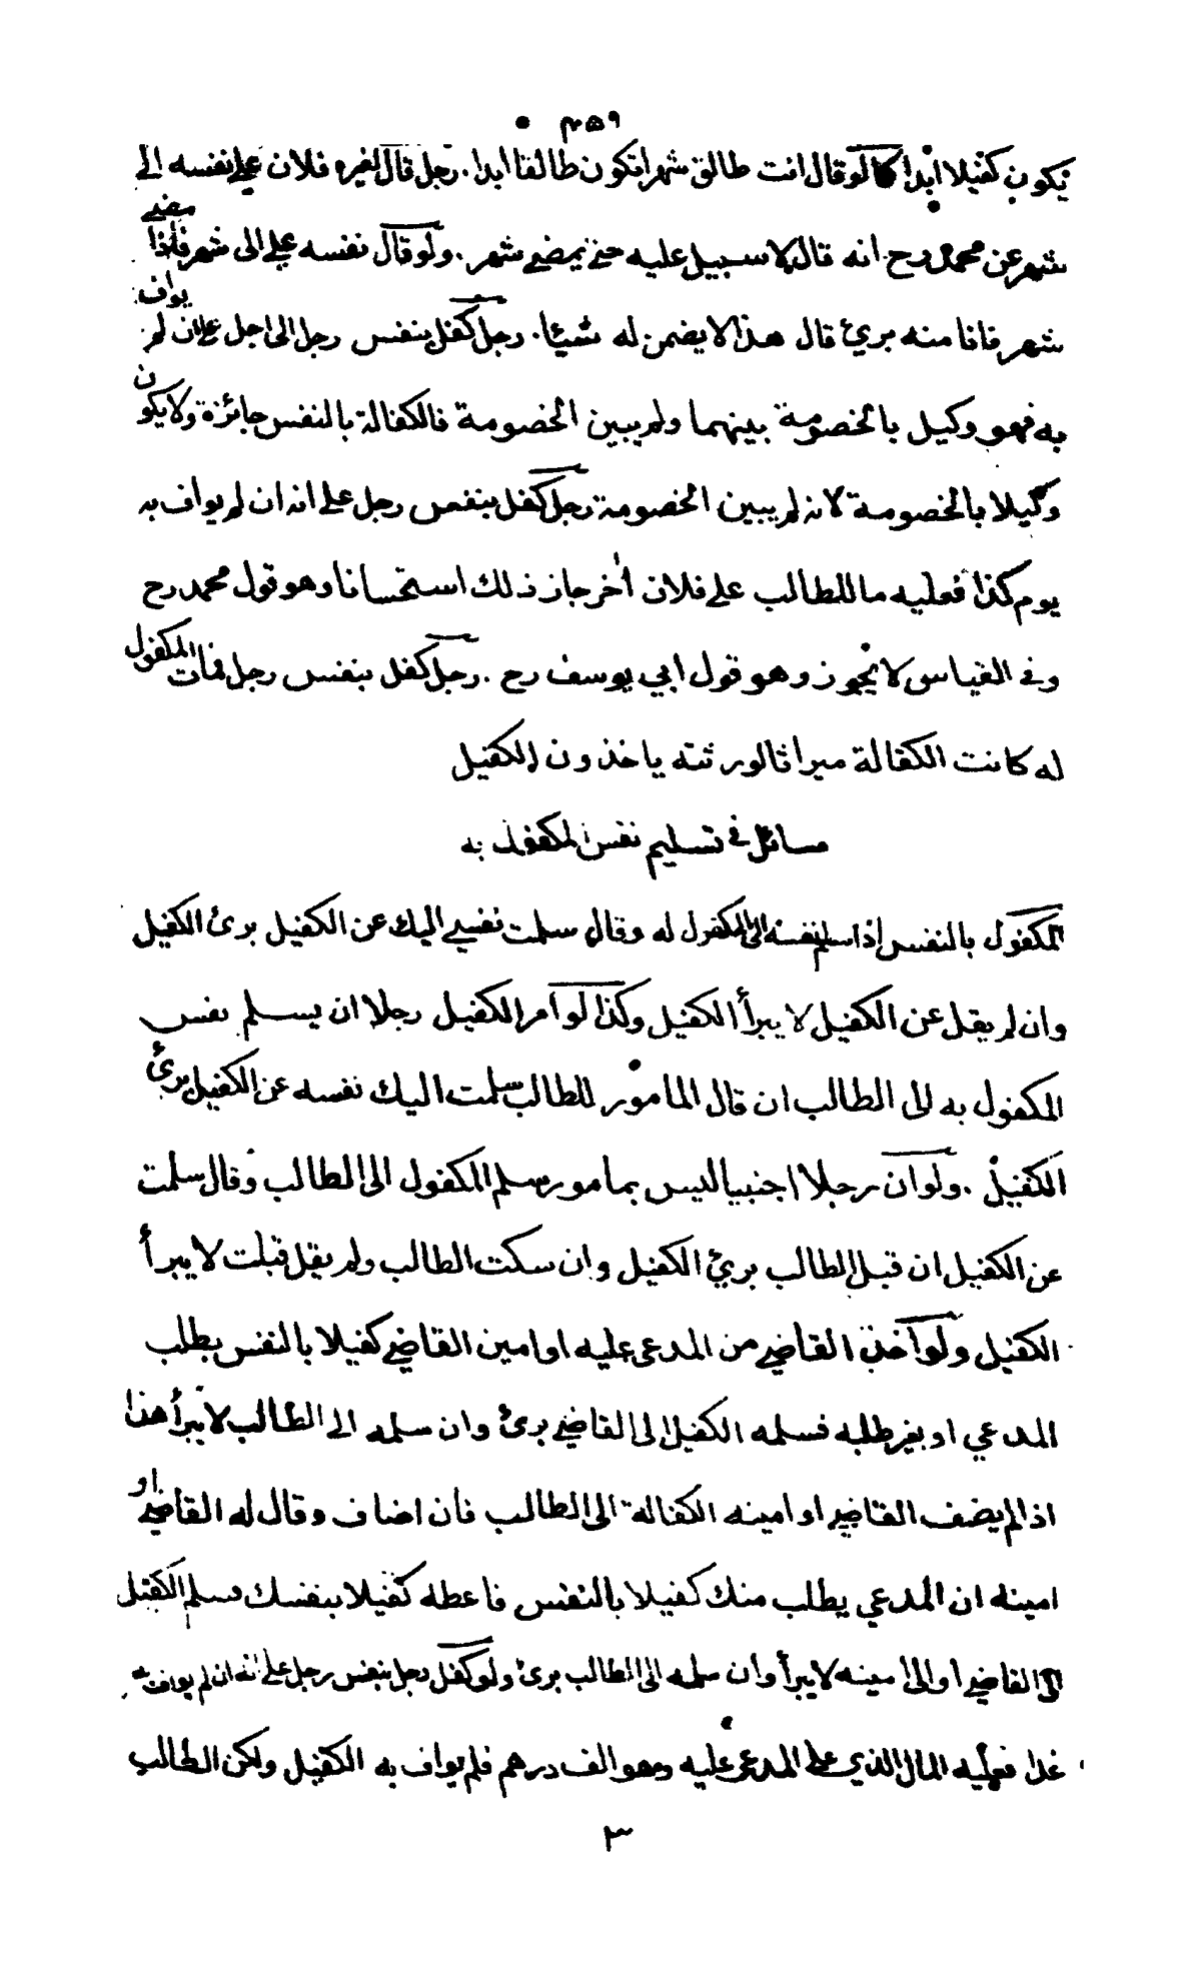 ٣٥٩
يكون كفيلا ابدا كما لو قال انت طالق شهرا تكون طالقا ابدا . رجل قال لغيره فلان علي نفسه الى
شهر عن محمد رح انه قال لا سبيل عليه حتى يمضي شهر . ولو قال نفسه علي الى شهر فاذا مضى
شهر فانا منه بريئ قال هذا لا يضمن له شيئا . رجل كفل بنفس رجل الى اجل على ان لم يواف
به فهو وكيل بالخصومة بينهما ولم يبين الخصومة فالكفالة بالنفس جائزة ولا يكون
وكيلا بالخصومة لانه لم يبين الخصومة رجل كفل بنفس رجل على انه ان لم يواف به
يوم كذا فعليه ما للطالب على فلان أخر جاز ذلك استحسانا وهو قول محمد رح
وفى القياس لا يجوز وهو قول ابي يوسف رح . رجل كفل بنفس رجل فمات المكفول
له كانت الكفالة ميراثا لورثته ياخذون الكفيل
مسائل فى تسليم نفس المكفول به
المكفول بالنفس اذا سلم نفسه الى المكفول له وقال سلمت نفسي اليك عن الكفيل برئ الكفيل
وان لم يقل عن الكفيل لا يبرأ الكفيل وكذا لو امر الكفيل رجلا ان يسلم نفس
المكفول به الى الطالب ان قال المامور للطالب سلمت اليك نفسه عن الكفيل برئ
الكفيل . ولو ان رجلا اجنبيا ليس بمامور سلم المكفول الى الطالب وقال سلمت
عن الكفيل ان قبل الطالب بريئ الكفيل وان سكت الطالب ولم يقل قبلت لا يبرأ
الكفيل ولو اخذ القاضي من المدعى عليه او امين القاضي كفيلا بالنفس بطلب
المدعي او بغير طلبه فسلمه الكفيل الى القاضي برئ وان سلمه الى الطالب لا يبرأ هذا
اذا لم يضف القاضي او امينه الكفالة الى الطالب فان اضاف وقال له القاضي او
امينه ان المدعي يطلب منك كفيلا بالنفس فاعطه كفيلا بنفسك فسلم الكفيل
الى القاضي او الى امينه لا يبرأ وان سلمه الى الطالب برئ ولو كفل رجل بنفس رجل على انه ان لم يواف به
غدا فعليه المال الذي على المدعى عليه وهو الف درهم فلم يواف به الكفيل ولكن الطالب
٣